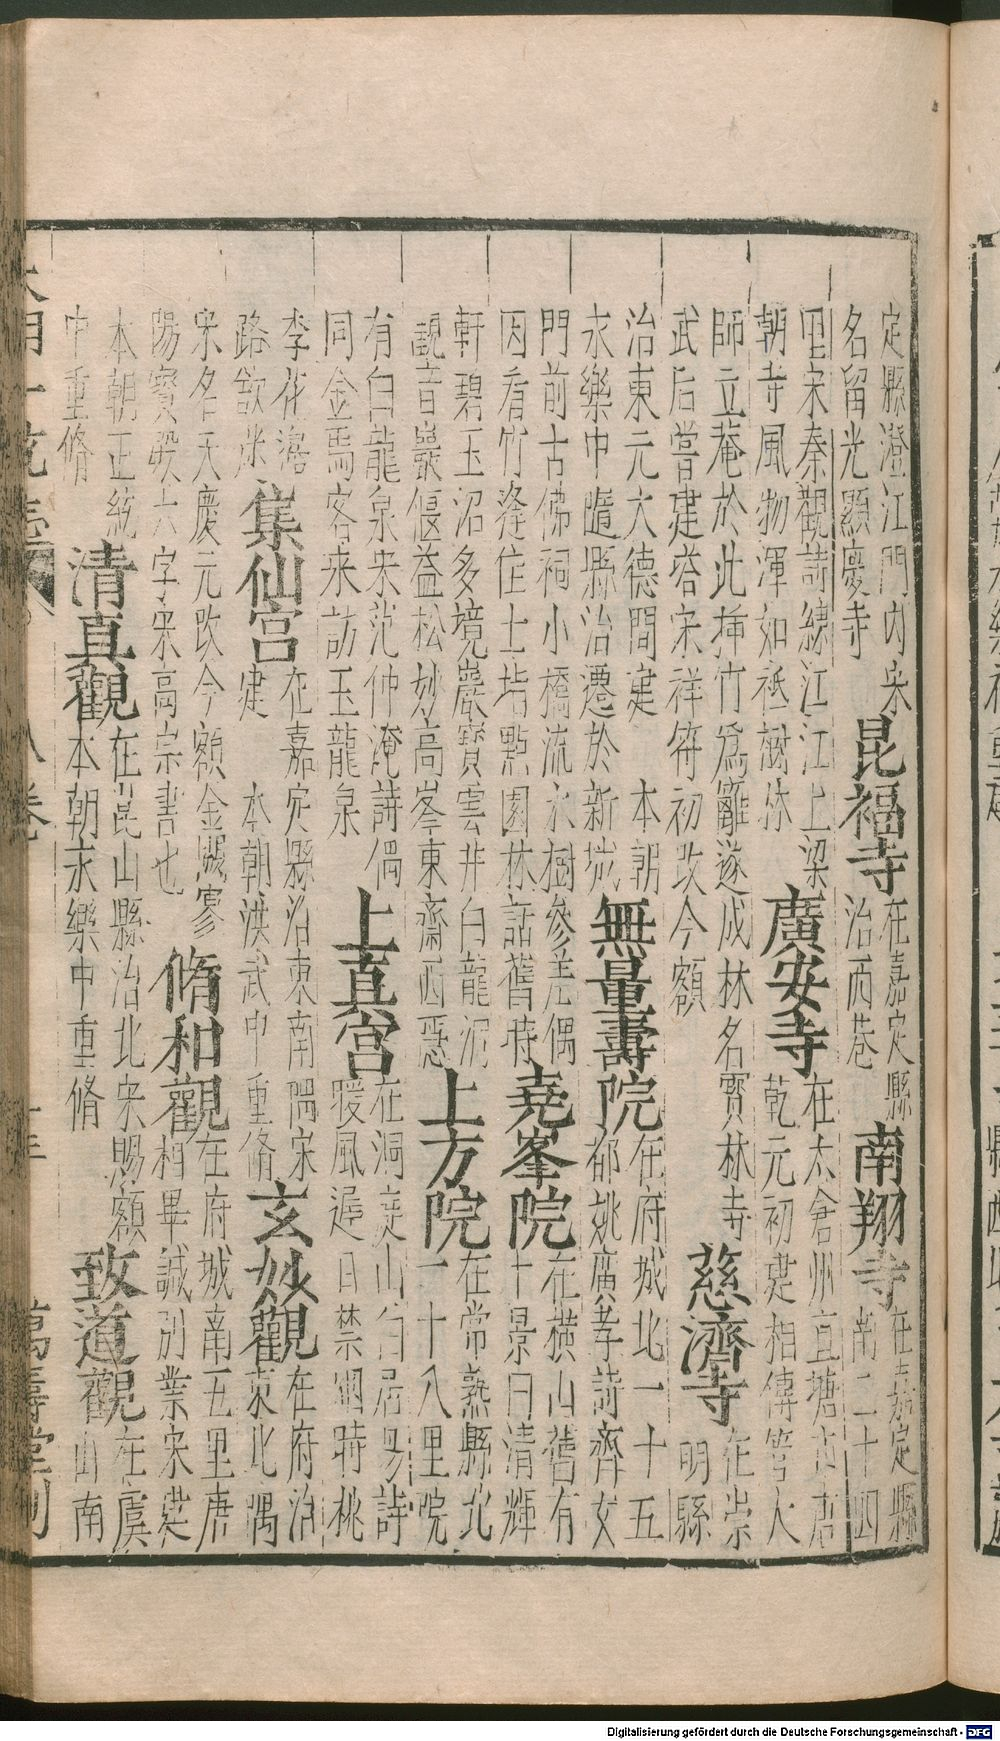 定縣澄江門內宋
名留光顯慶寺
昆福寺
在嘉定縣
治西巷
南翔寺
在嘉定縣
南二十四
里宋秦觀詩繚江江上梁
朝寺風物渾如祇樹林
廣安寺
在太倉州直塘市唐
乾元初建相傳筈大
師立菴於此揷竹爲籬遂成林名寳林寺
武后嘗建塔宋祥符初改今額
慈濟寺
在崇
明縣
治東元大德間建
本朝
永樂中隨縣治遷於新城
無量壽院
在府城北一十五
都姚廣孝詩齊女
門前古佛祠小橋流水樹參差偶
因看竹逢住士坫㸃園林話舊時
堯峯院
在橫山舊有
十景曰清輝
軒碧玉沼多境巖寳雲井白龍泂
觀音巖偃益松妙高峯東齋西隱
上方院
在常熟縣北
一十八里院
有白龍泉宋范仲淹詩偶
同金馬客来訪玉龍泉
上真宮
在洞庭山白居昜詩
暖風遲日禁烟時桃
李花落
路歆米
集仙宮
在嘉定縣治東南隅宋
建
本朝洪武中重脩
玄妙觀
在府治
東北隅
宋名天慶元改今額金闕寥
陽寳殿六字宋高宗書也
脩和觀
在府城南五里唐
相畢諴別業宋建
本朝正統
中重脩
清真觀
在崑山縣治北宋賜額
本朝永樂中重脩
致道觀
在虞
山南
大明一統志
八卷
萬壽堂刊
Digitalisierung gefördert durch die Deutsche Forschungsgemeinschaft - DFG